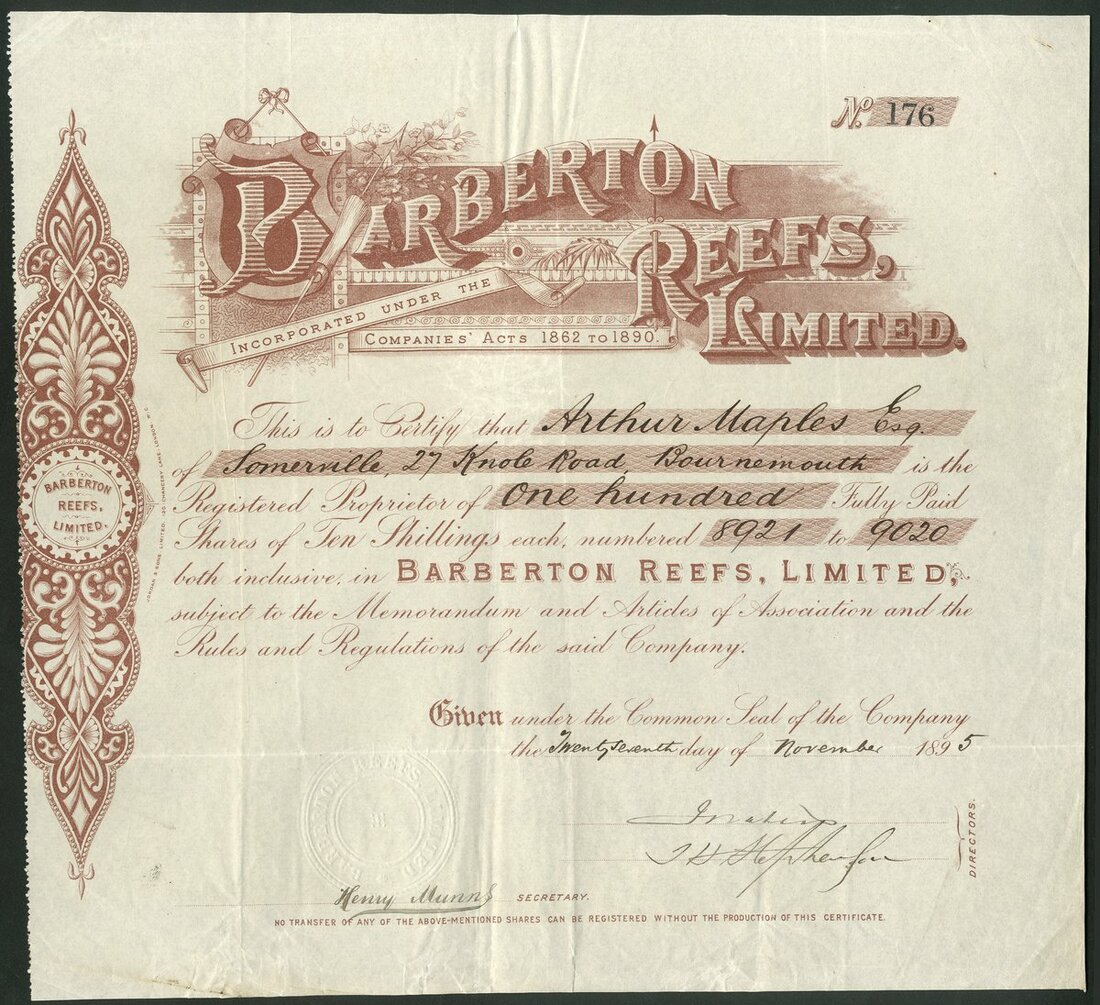 No. 176
BARBERTON
REEFS,
LIMITED.
INCORPORATED UNDER THE
COMPANIES' ACTS 1862 TO 1890.
This is to Certify that Arthur Maples Esq.
of Somerville, 27 Knole Road, Bournemouth is the
Registered Proprietor of One hundred Fully Paid
Shares of Ten Shillings each, numbered 8921 to 9020
both inclusive, in BARBERTON REEFS, LIMITED,
subject to the Memorandum and Articles of Association and the
Rules and Regulations of the said Company.
Given under the Common Seal of the Company
the Twenty seventh day of November 1895
DIRECTORS.
Henry Munns SECRETARY.
NO TRANSFER OF ANY OF THE ABOVE-MENTIONED SHARES CAN BE REGISTERED WITHOUT THE PRODUCTION OF THIS CERTIFICATE.
BARBERTON
REEFS,
LIMITED.
JORDAN & SONS LIMITED, 120 CHANCERY LANE, LONDON, W.C.
BARBERTON REEFS LIMITED